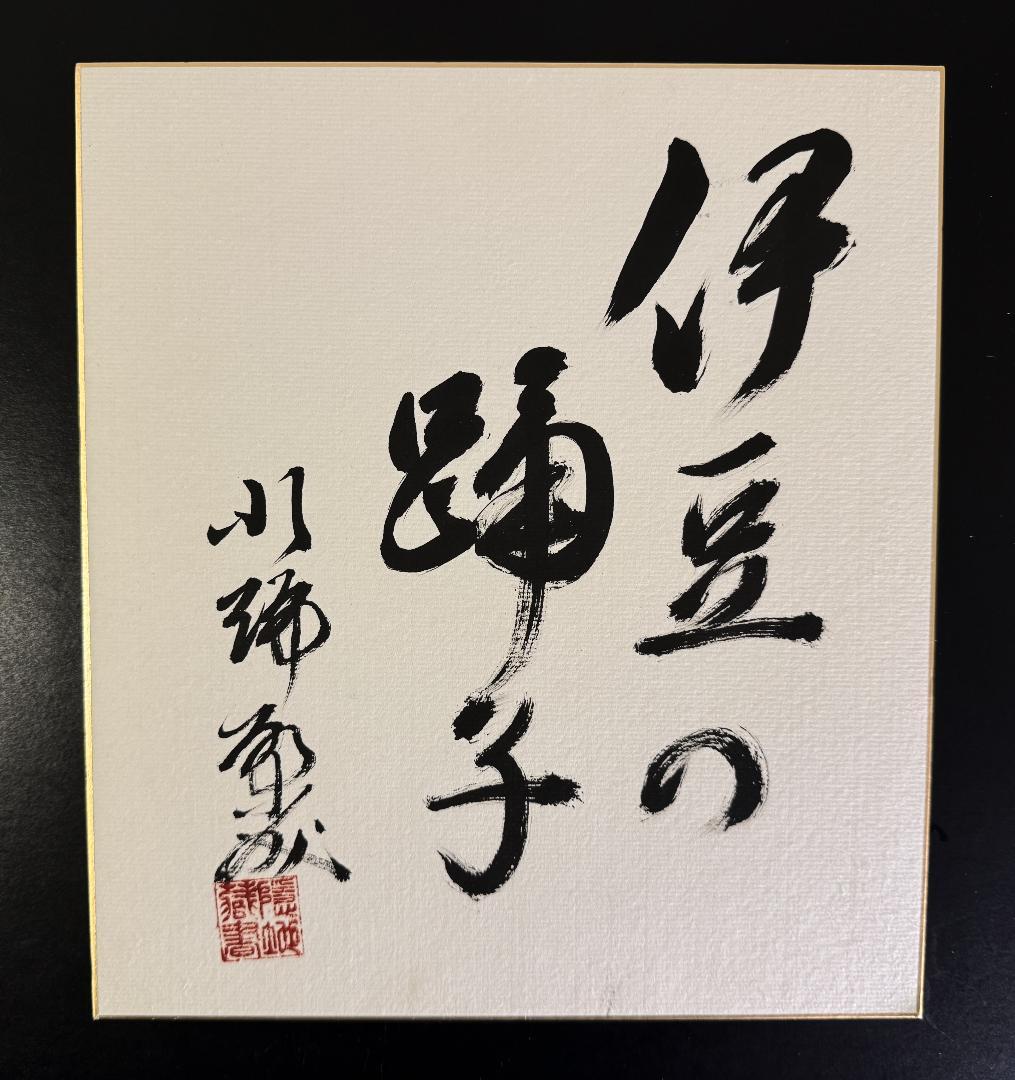 伊豆の
踊子
川端康成